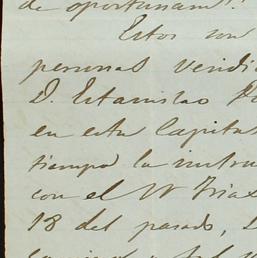 de oportunam
Estos son
personas vendi
D. Estanislao
en esta Capita
tiempo la instru
con el Sr Frias
18 del pasado,